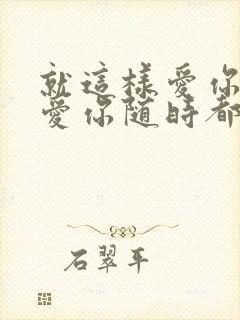 就這樣愛你
愛你随時都
石翠平